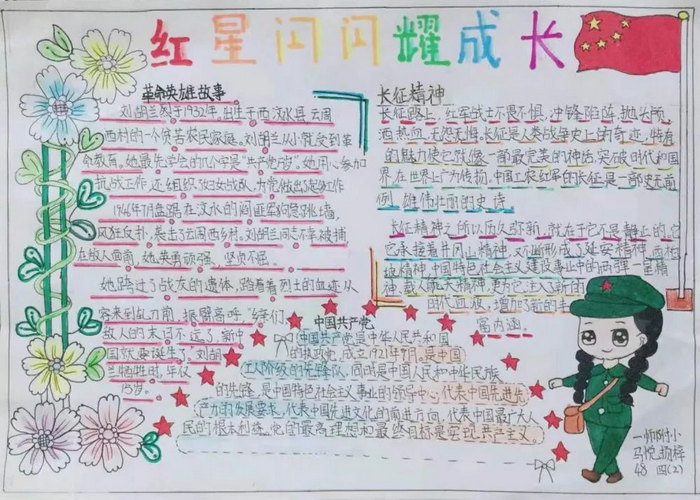 红星闪闪耀成长
革命英雄故事
刘胡兰烈于1932年,出生于西汶水县云周
西村的一个贫苦农民家庭。刘胡兰从小就受到革
命教育。她最先学生的几个字是"共产党好"。她用心参加
抗战工作,还组织了妇女战队,为党做出突出工作
1946年7月盘踞在汶水的阎匪军
疯狂反扑,袭击了云周西乡村。刘胡兰同志不幸被捕
在敌人面前,她英勇顽强,坚贞不屈。
她跨过了战友的遗体,踏着着烈士的血迹从
容来到铡刀前,振臂高呼
敌人的末日不远了,新中
国就要诞生了。刘胡
兰牺牲时,年仅
15岁。
长征精神
长征路上,红军战士不畏不惧,冲锋陷阵,抛头颅,
洒热血,无怨无悔。长征是人类战争史上的奇迹,特有
的魅力使它就像一部最完美的神话,突破时代和国
界在世界上广为传扬,中国工农红军的长征是一部史无前
例、雄伟壮丽的史诗。
长征精神之所以历久弥新,就在于它不是静止的,它
它承接着井冈山精神,又不断形成了延安精神,西柏
坡精神,中国特色社会主义建设事业中的两弹一星精
神、载人航天精神,更为它注入了新的
时代血液,增加了新的丰
富内涵。
中国共产党
中国共产党是中华人民共和国
的执政党,成立1921年7月,是中国
工人阶级的先锋队,同时是中国人民和中华民族
的先锋,是中国特色社会主义事业的领导中心,代表中国先进先
产力的发展要求,代表中国先进文化的前进方向,代表中国最广大人
民的根本利益。他的最高理想和最终目标是实现共产主义。
一师附小
马悦
48 图(2)